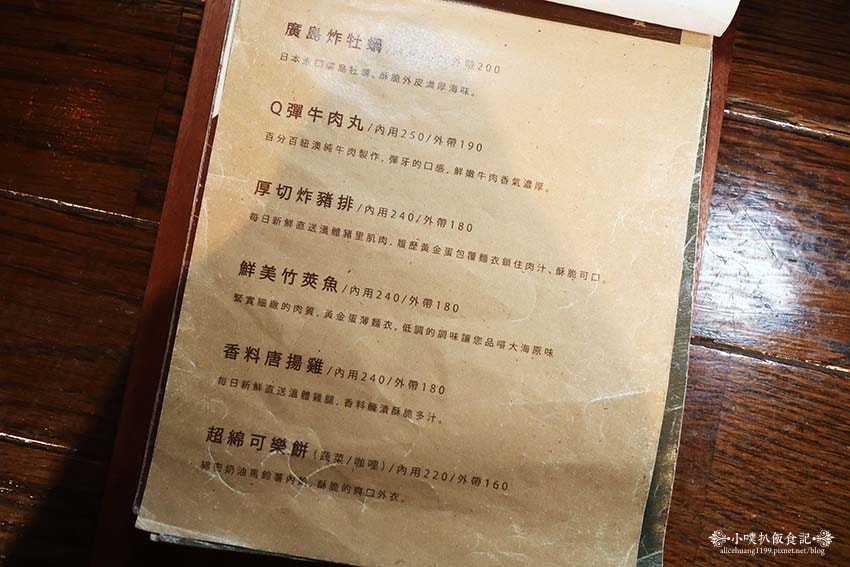 廣島炸牡蠣/內用 /外帶200
日本進口廣島牡蠣、酥脆外皮濃厚海味。
Q彈牛肉丸/內用250/外帶190
百分百紐澳純牛肉製作，彈牙的口感，鮮嫩牛肉香氣濃厚。
厚切炸豬排/內用240/外帶180
每日新鮮直送溫體豬里肌肉，履歷黃金蛋包覆麵衣鎖住肉汁、酥脆可口。
鮮美竹莢魚/內用240/外帶180
緊實細緻的肉質，黃金蛋薄麵衣，低調的調味讓您品嚐大海原味
香料唐揚雞/內用240/外帶180
每日新鮮直送溫體雞腿，香料醃漬酥脆多汁。
超綿可樂餅（蔬菜/咖哩）/內用220/外帶160
綿密奶油馬鈴薯內餡，酥脆的爽口外衣。
•小噗扒飯食記•
alicehuang1199.pixnet.net/blog